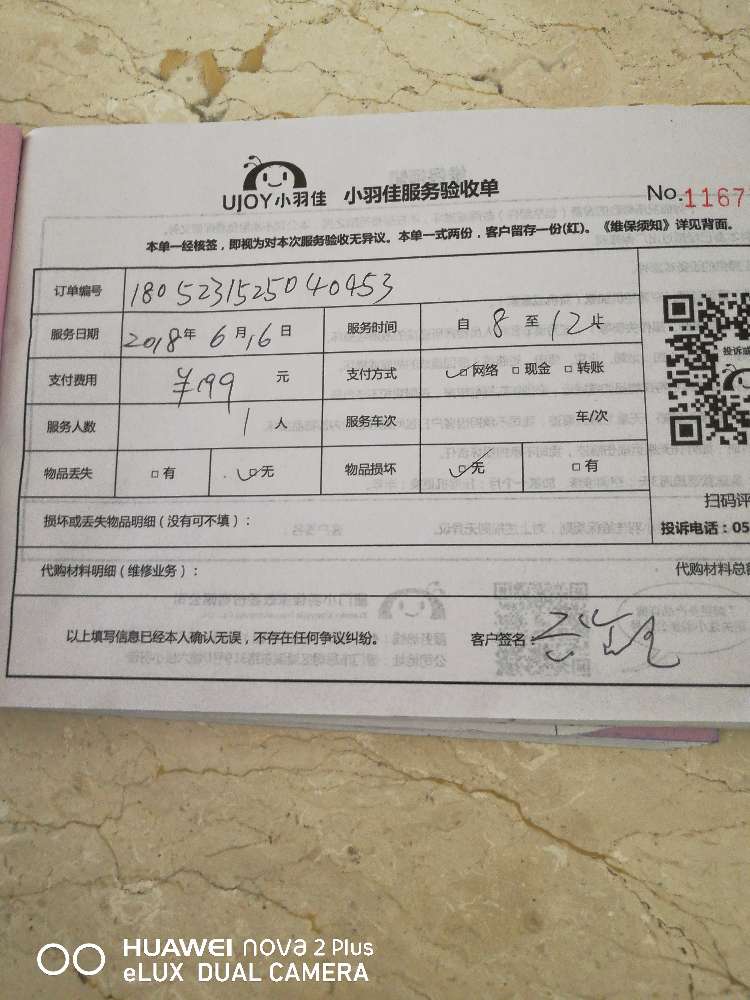 UJOY小羽佳 小羽佳服务验收单 No.1167
本单一经核签，即视为对本次服务验收无异议。本单一式两份，客户留存一份(红)。《维保须知》详见背面。
订单编号 1805231525040453
服务日期 2018年 6月16日 服务时间 自 8 至 12止
支付费用 ¥199 元 支付方式 网络 现金 转账
服务人数 1 人 服务车次 车/次
物品丢失 有 无 物品损坏 无 有
扫码评
损坏或丢失物品明细（没有可不填）： 投诉电话：05
代购材料明细（维修业务）： 代购材料总
以上填写信息已经本人确认无误，不存在任何争议纠纷。 客户签名：
HUAWEI nova 2 Plus
eLUX DUAL CAMERA